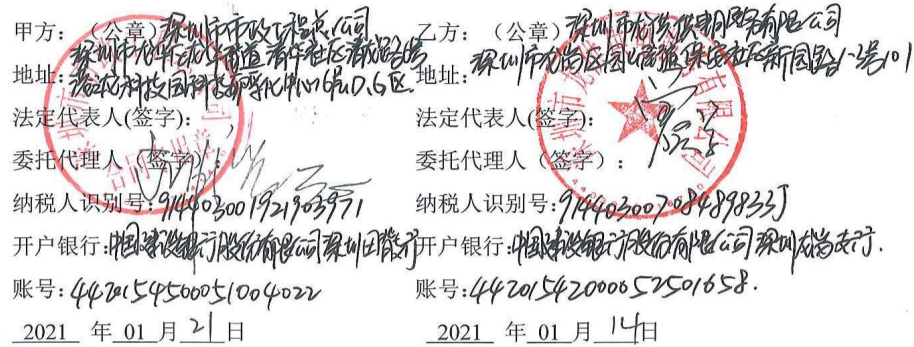 甲方：（公章）深圳市市政工程总公司
深圳市龙华区龙华街道清华社区清龙路
港之龙科技园科技孵化中心6层D、G区
地址：
法定代表人(签字)：
委托代理人（签字）：
纳税人识别号：914403001921903971
开户银行：中国建设银行股份有限公司深圳田背支行
账号：44201545000051004022
2021 年 01 月 21 日
乙方：（公章）深圳市龙供供用服务有限公司
深圳市龙岗区园山街道保安社区新园路1-2号101
地址：
法定代表人(签字)：
委托代理人（签字）：
纳税人识别号：91440300708489833J
开户银行：中国建设银行股份有限公司深圳龙岗支行.
账号：44201542000052501658.
2021 年 01 月 14日
合同专用章